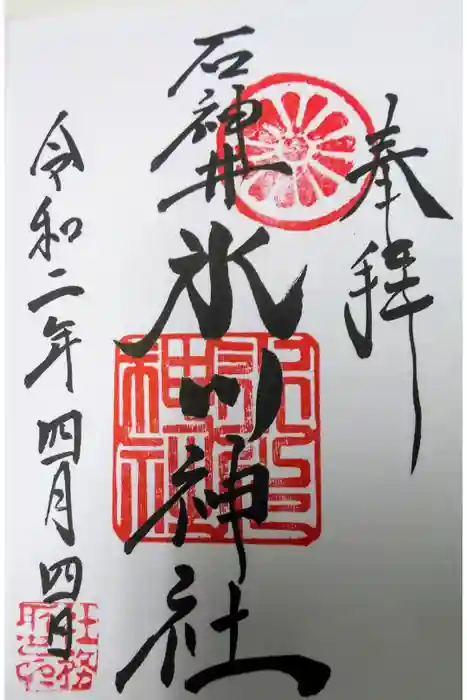 奉拝
石神井
氷川神社
令和二年四月四日
氷川神社
社務所